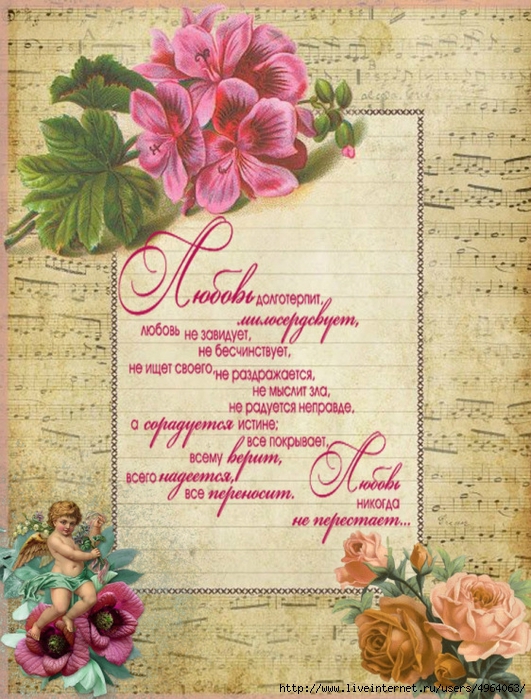 Любовь долготерпит,
милосердсвует,
любовь не завидует,
не бесчинствует,
не ищет своего, не раздражается,
не мыслит зла,
не радуется неправде,
а сорадуется истине;
все покрывает,
всему верит,
всего надеется,
все переносит.
Любовь
никогда
не перестает...
http://www.liveinternet.ru/users/4964063/